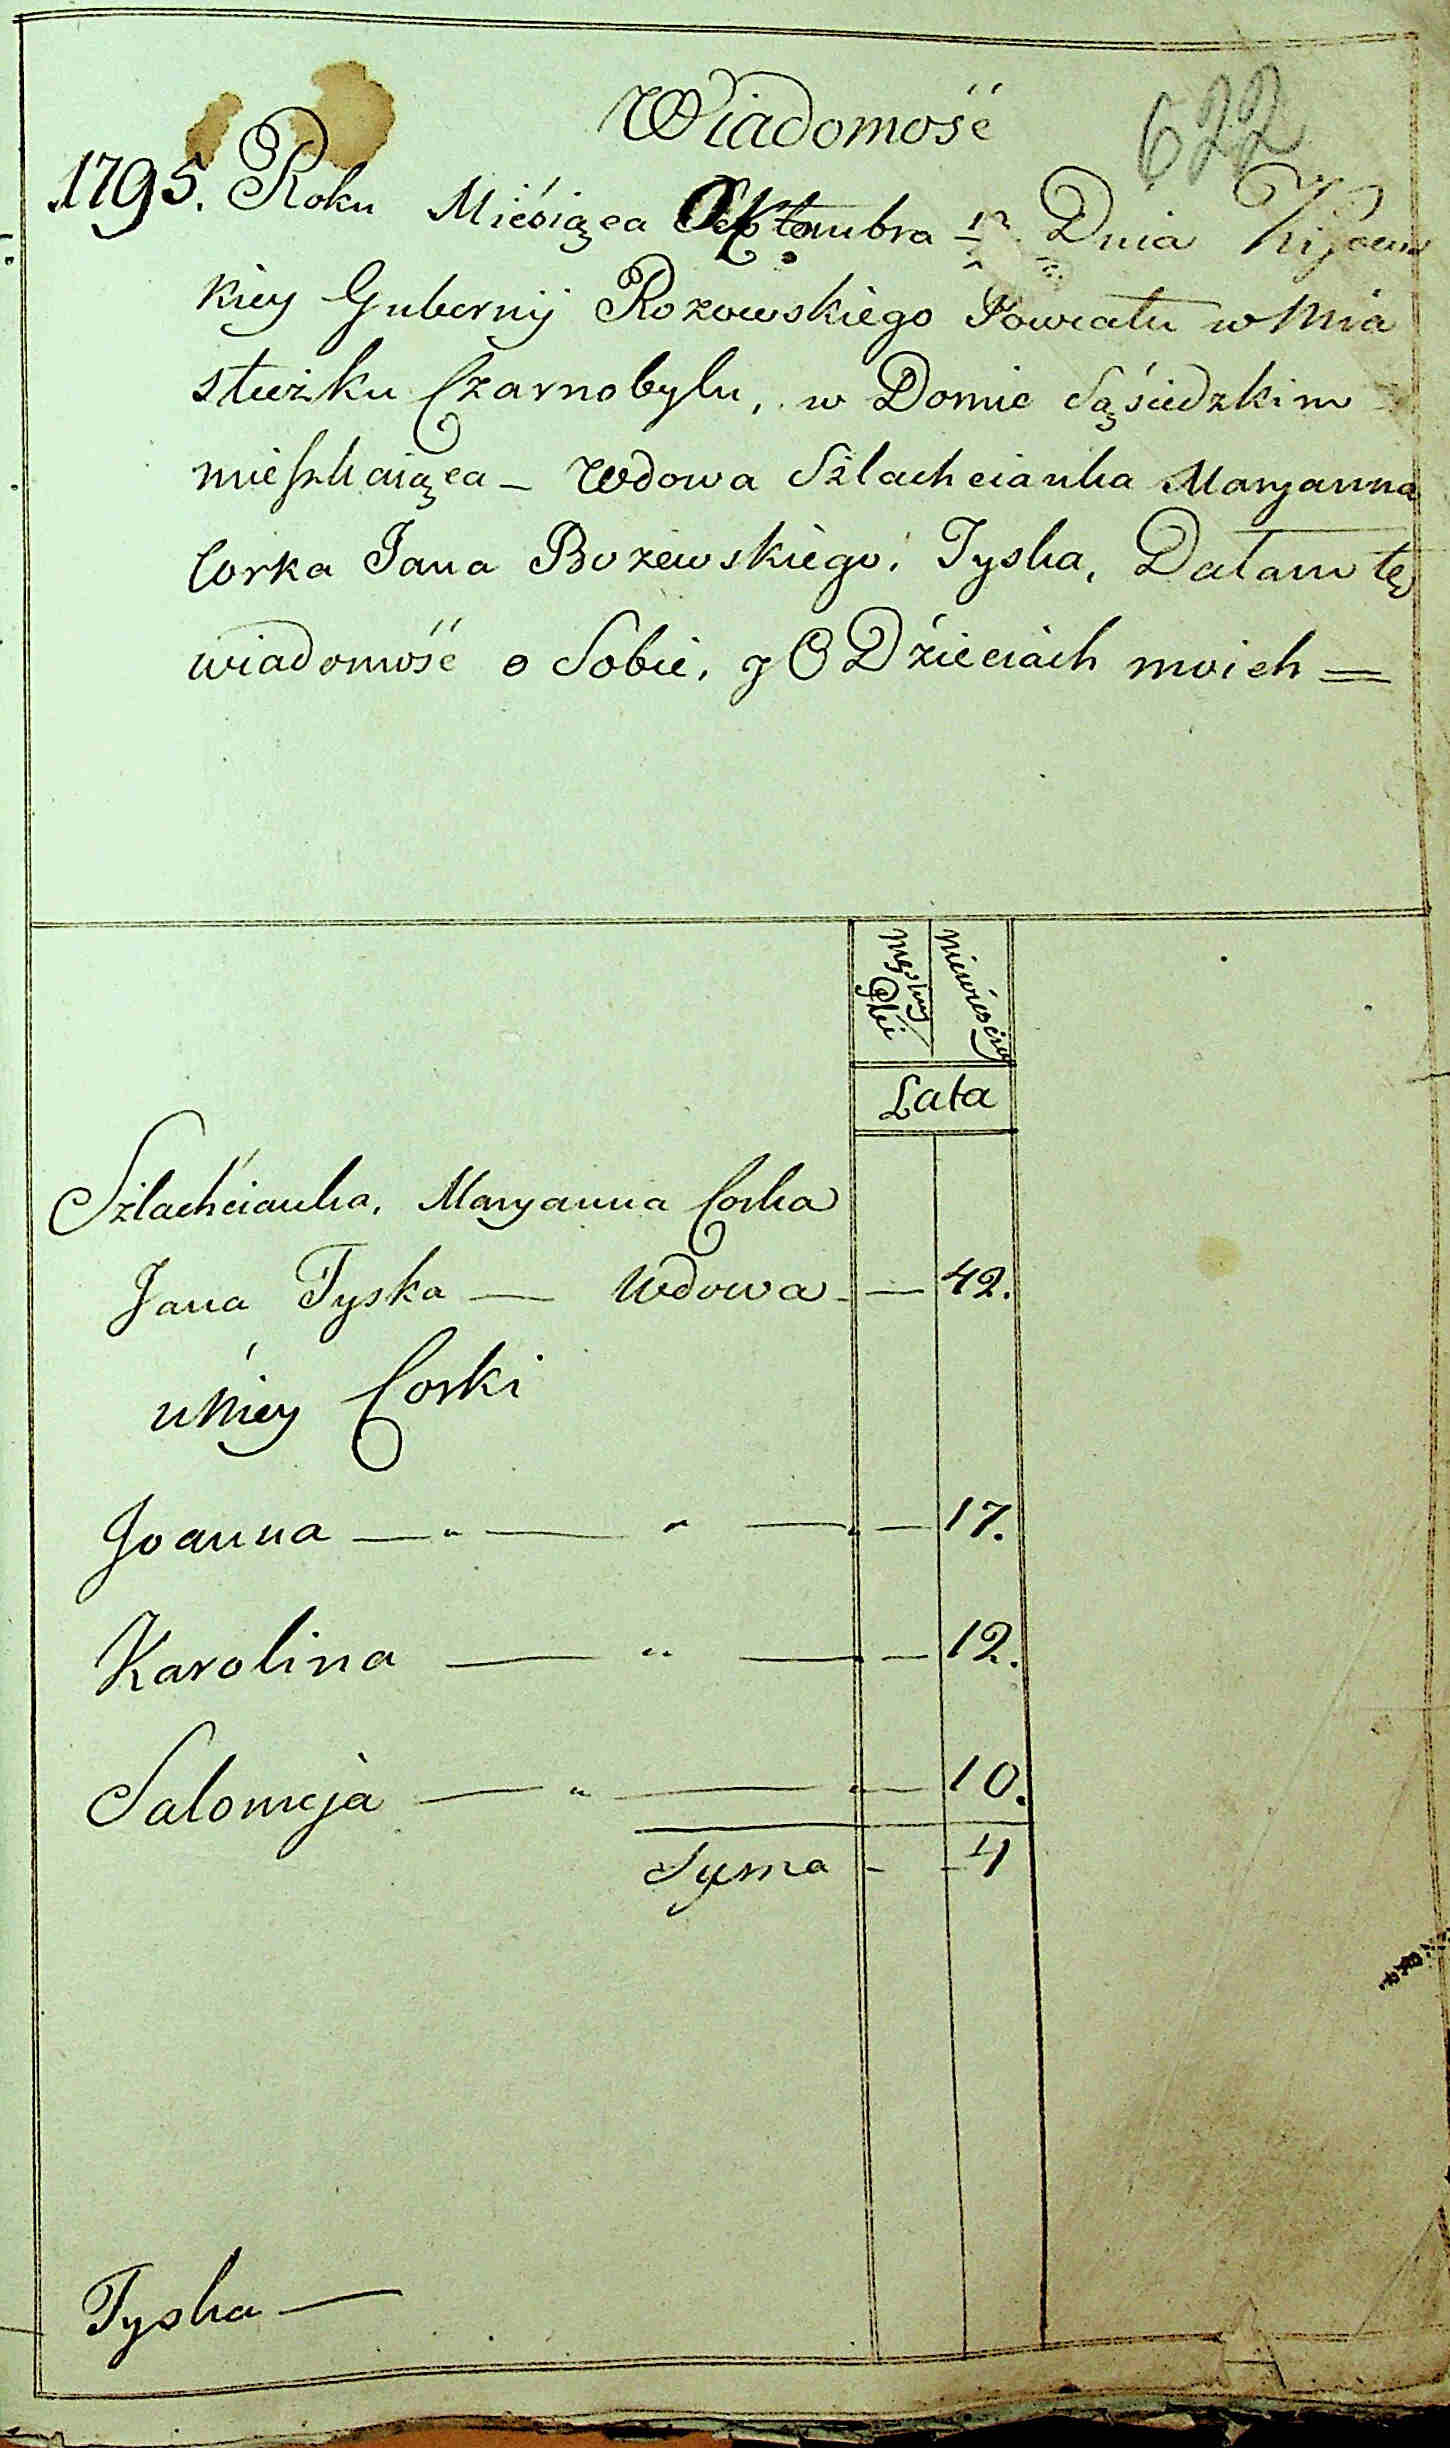 622
Wiadomość
1795. Roku Miesiąca Oktombra Dnia Kijows
kiey Gubernij Rozowskiego Powiatu w Mia
steczku Czarnobylu, w Domie Sąsiedzkim
mieszkaiąca – Wdowa Szlachcianka Maryanna
Corka Jana Bozewskiego. Tyska, Dałam tę
wiadomość o Sobie, y O Dzieciach moich =
Męskiey Płci
Niewieściey
Lata
Szlachcianka, Maryanna Corka
Jana Tyska — Wdowa — 42.
u Niey Corki
Joanna — " — " — 17.
Karolina — " — 12.
Salomeja — " — 10.
Syma - - 4
Tyska —